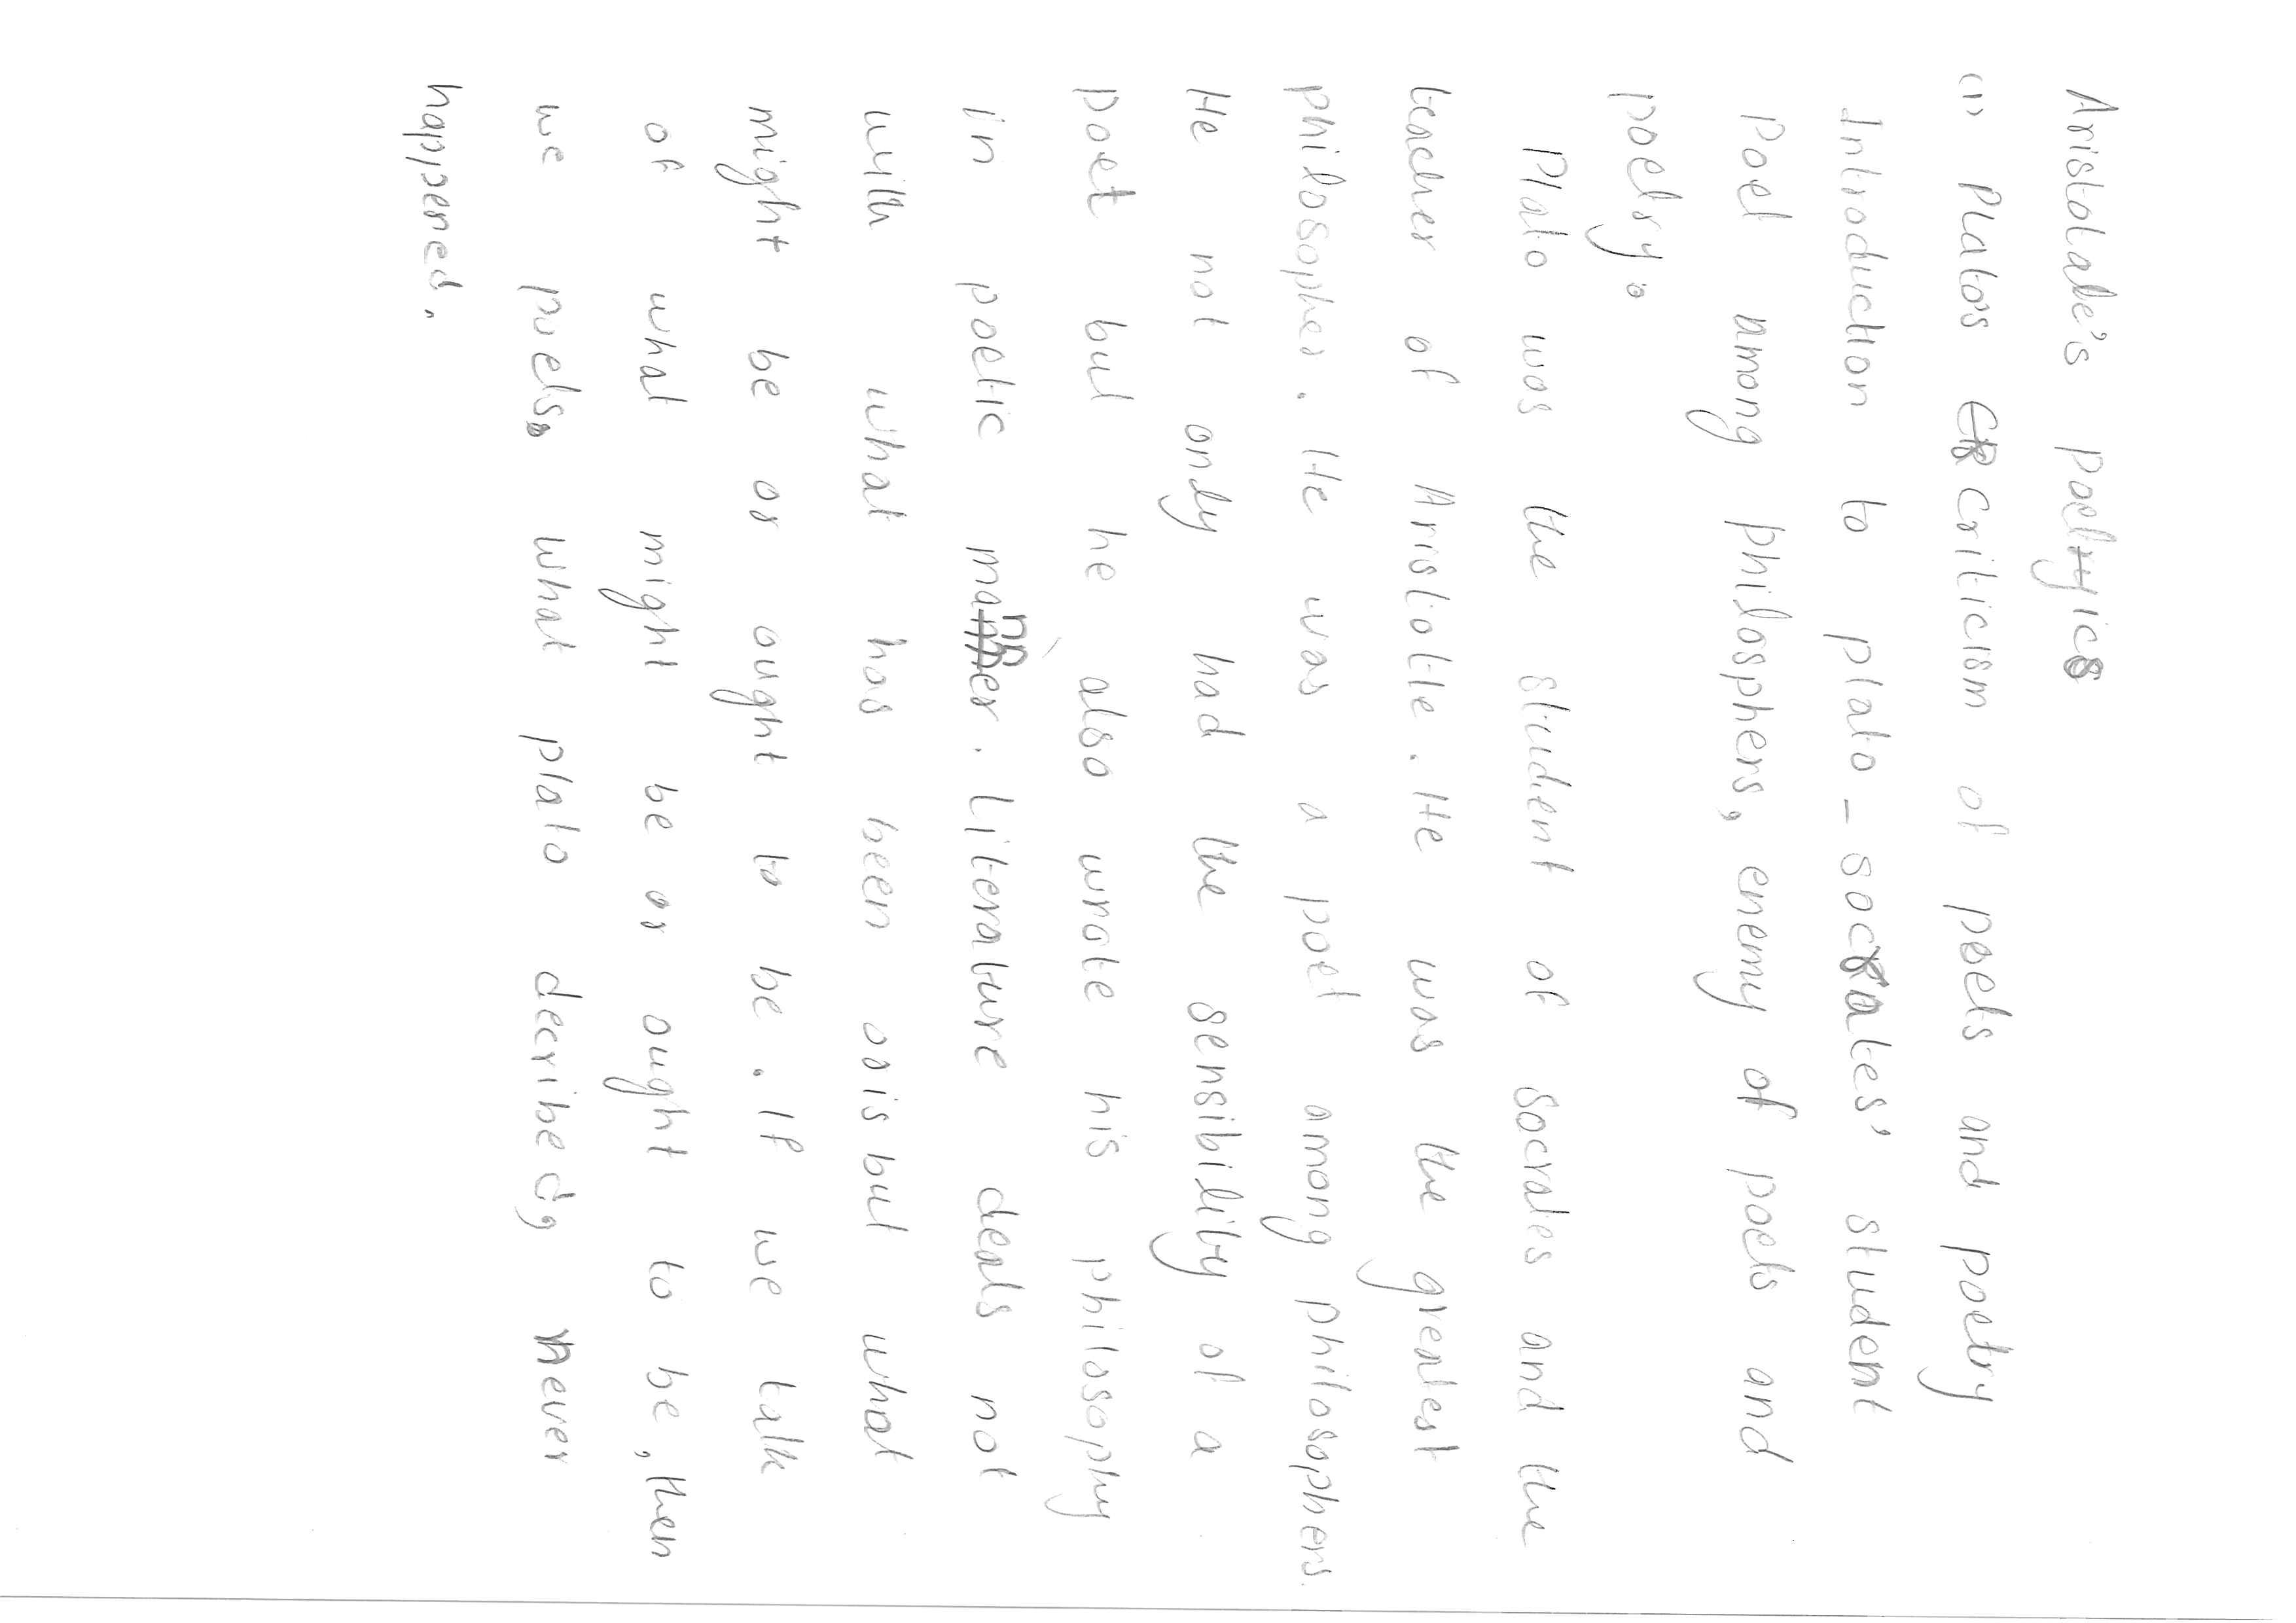 Aristotale's Poetics
(1) Plato's Criticism of poets and poetry
Introduction to plato - socrates' student
Poet among philosphers, enemy of poets and
poetry.
Plato was the student of Socrates and the
teacher of Aristotle. He was the greatest
philosopher. He was a poet among philosophers.
He not only had the sensibility of a
poet but he also wrote his philosophy
in poetic manner. Literature deals not
with what has been or is but what
might be or ought to be. If we talk
of what might be or ought to be, then
we poets. What plato decribed, never
happened.